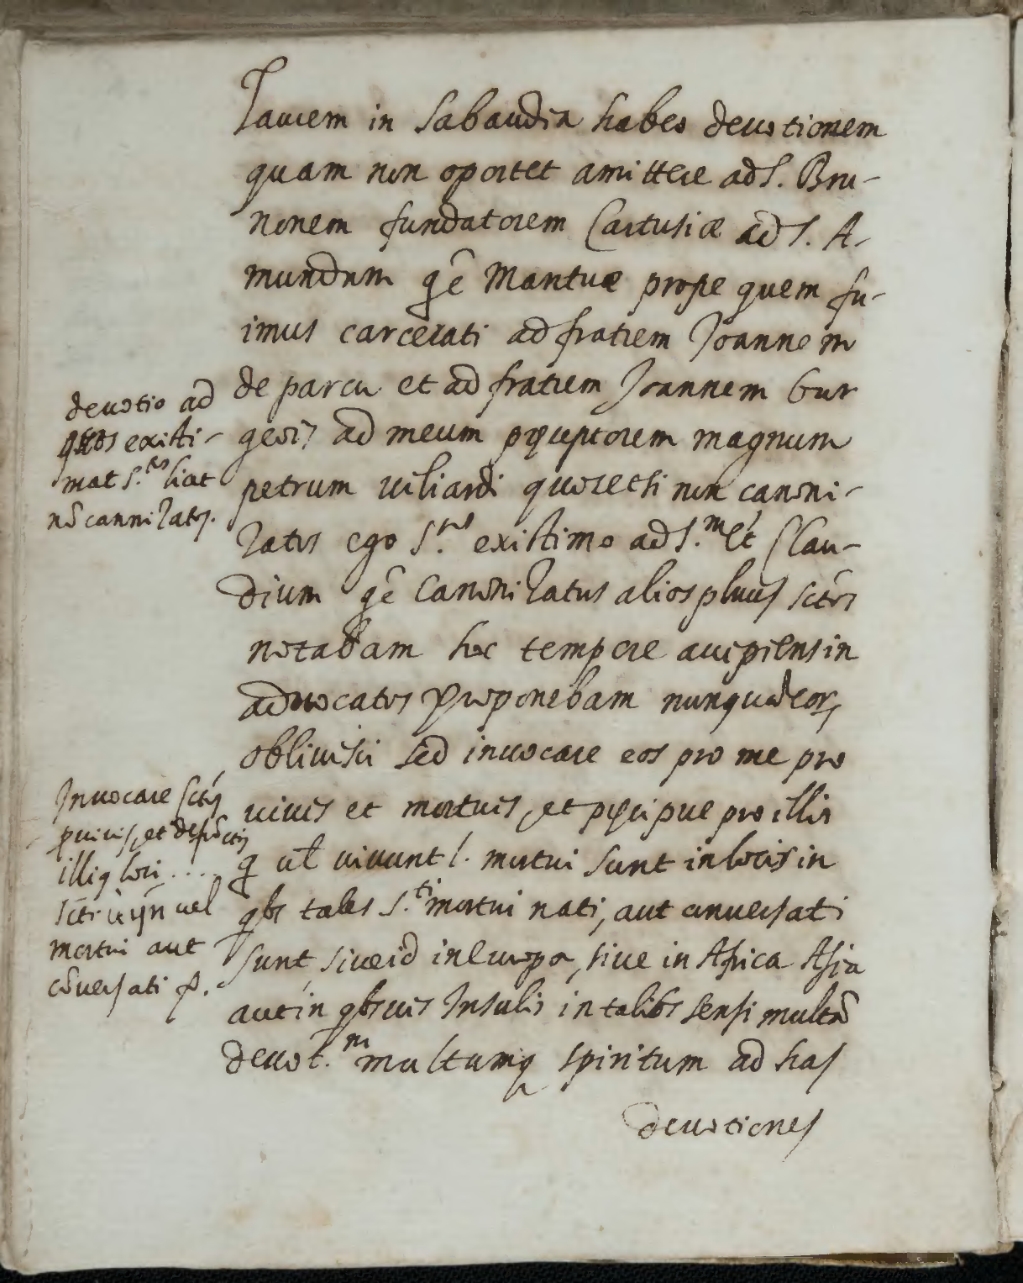 Iaucem in Sabaudia habeo deuotionem
quam non oportet amittere ad S. Bru-
nonem fundatorem Cartusiæ ad S. A-
mundum q̃ẽ Mantuæ prope quem fu-
imus carcerati ad fratrem Joannem
de parcu et ad fratrem Joannem bur
geois, ad meum præceptorem magnum
petrum viliardi quos etsi non canoni-
zatos ego S.tos existimo ad S.m et Clau-
dium q̃ẽ canonizatus alios plures sctõs
notabam hoc tempore accipiens in
aduocatos proponebam nunquã eor,
obliuisci sed inuocare eos pro me pro
viuis et mortuis, et præcipue pro illis
q̃ vl̃ viuunt l. mortui sunt in locis in
qbs tales S.ti mortui nati, aut conuersati
sunt siue id in Europa, siue in Africa Asia
aut in qbsuis Insulis in talibs sensi multã
deuot.m multumq spiritum ad has
deuotiones
deuotio ad
quos existi-
mat S.tos licet
nõ cannizatos.
Inuocare sctõs
p viuis, et defũctis
illiq loci ...
sctĩ vel
mortui aut
cõuersati